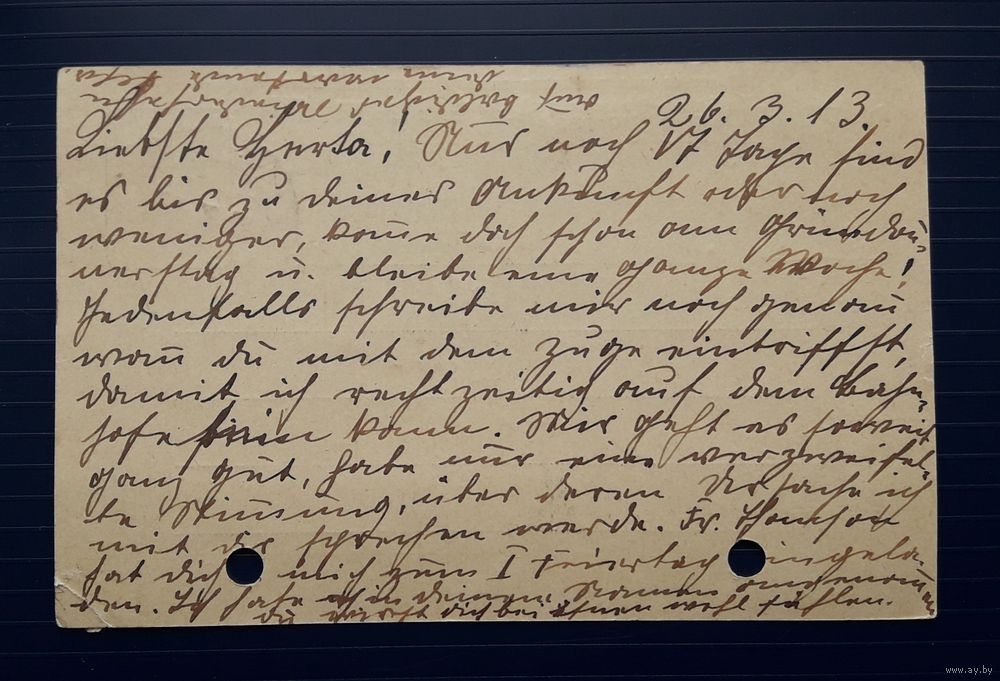 26. 3. 13.
Liebste Herta! Nur noch 17 Tage sind
es bis zu deiner Ankunft oder noch
weniger, komme doch schon am Gründon-
nerstag u. bleibe eine ganze Woche!
Jedenfalls schreibe mir noch genau
wann du mit dem Zuge eintriffst,
damit ich rechtzeitig auf dem Bahn-
hofe sein kann. Mir geht es soweit
ganz gut, habe nur eine verzweifel-
te Stimmung, über deren Ursache ich
mit dir sprechen werde. Fr.
hat dich mich zum I Feiertag eingela-
den. Ich habe in deinem Namen angenommen
du wirst dich bei ihnen wohl fühlen.
Auf baldiges Wiedersehen
deine
www.ay.by